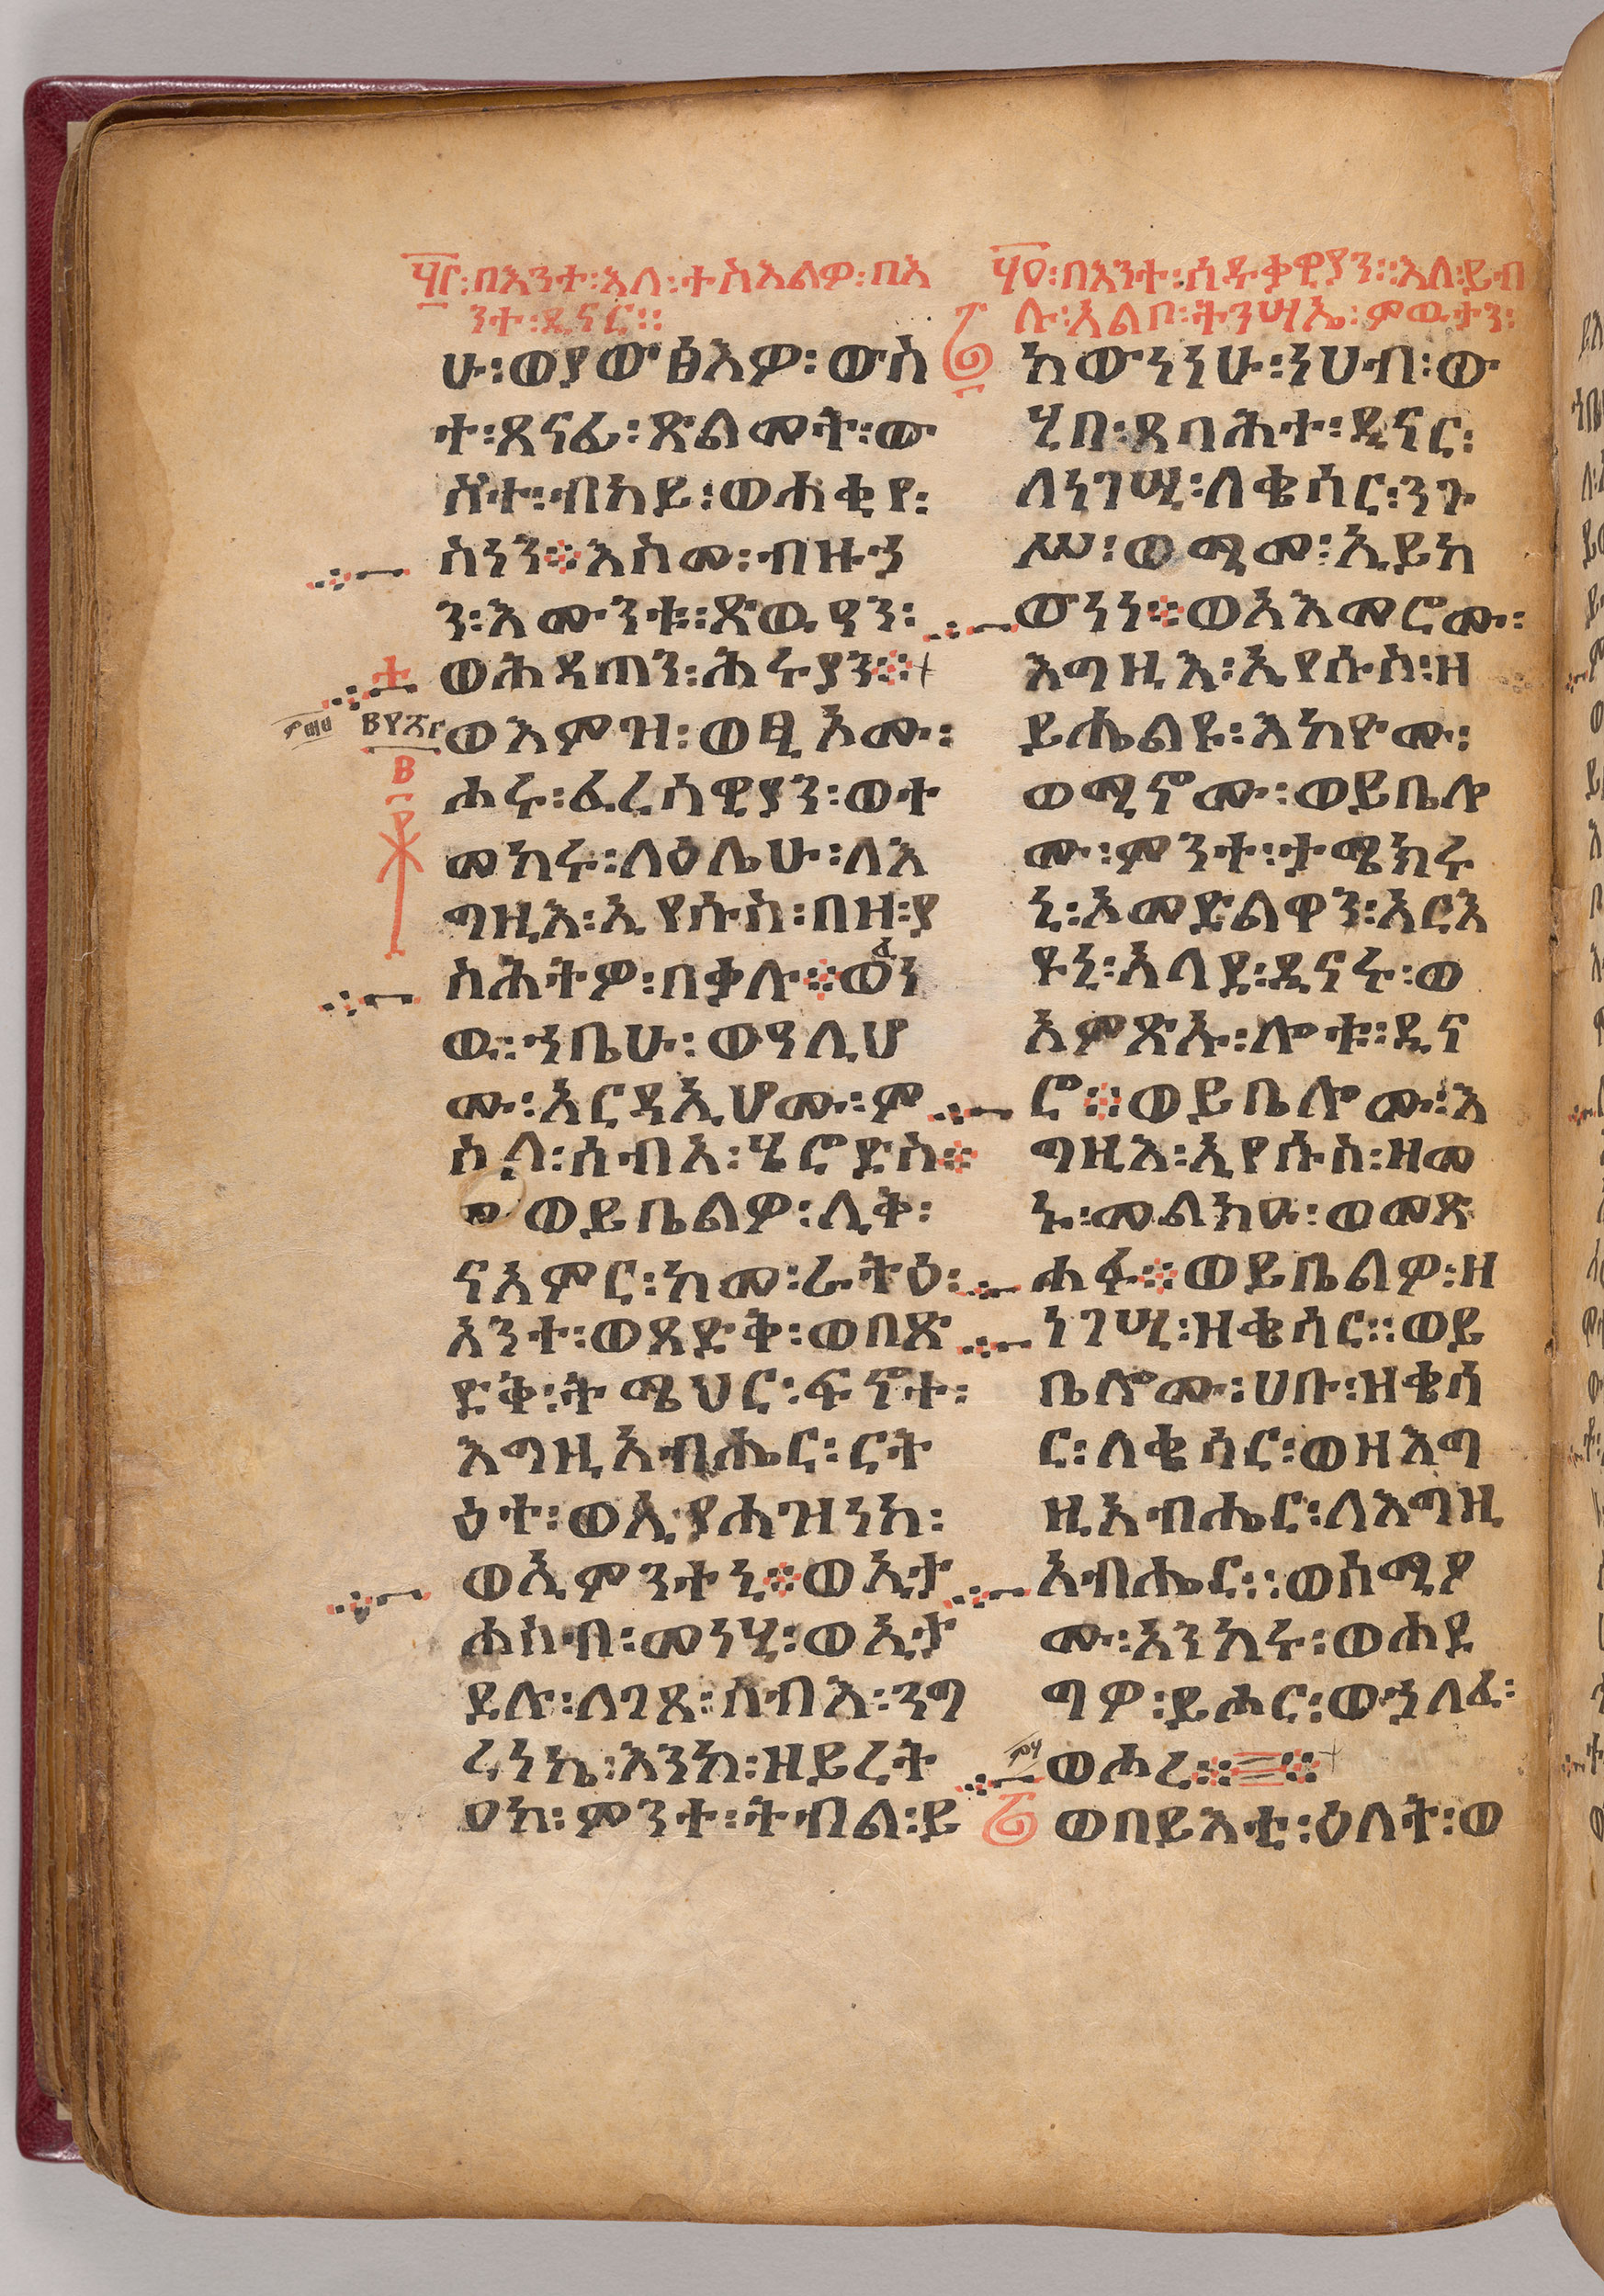 ፶፫፡በእንተ፡እለ፡ተስእልዎ፡በእ
ንተ፡ዲናር።
ሁ፡ወያውፅእዎ፡ውስ
ተ፡ጸናፊ፡ጽልመት፡ው
ስተ፡ብካይ፡ወሐቂየ፡
ስነን፨እስመ፡ብዙኃ
ን፡እሙንቱ፡ጽዉዓን፡
ወሕዳጣን፡ሕሩያን፨
ወእምዝ፡ወፂኦሙ፡
ሐሩ፡ፈረሳዊያን፡ወተ
መከሩ፡ለዕሌሁ፡ለእ
ግዚእ፡ኢየሱስ፡በዘ፡ያ
ስሕትዎ፡በቃሉ፨ወፈነ
ዉ፡ኀቤሁ፡ውዓሊሆ
ሙ፡አርዳኢሆሙ፡ም
ስለ፡ሰብአ፡ሄሮድስ፨
ወይቤልዎ፡ሊቅ፡
ናአምር፡ከመ፡ራትዕ፡
አንተ፡ወጻድቅ፡ወበጽ
ድቅ፡ትሜህር፡ፍኖተ፡
እግዚአብሔር፡ርት
ዕተ፡ወኢያሐዝነከ፡
ወኢምንተኒ፨ወኢታ
ሐስብ፡መነሂ፡ወኢታ
ደሉ፡ለገጸ፡ሰብእ፡ንግ
ረነኬ፡እንከ፡ዘይረት
ዐከ፡ምንተ፡ትብል፡ይ
፶፬፡በእንተ፡ሰዱቃዊያን።እለ፡ይብ
ሉ፡አልቦ፡ትንሣኤ፡ምዉታን፡
ከውነነሁ፡ነሀብ፡ው
ሂበ፡ጸባሕተ፡ዲናር፡
ለነገሢ፡ለቄሳር፡ንጉ
ሥ፡ወሚመ፡ኢይከ
ውነነ፨ወአእመሮሙ፡
እግዚእ፡ኢየሱስ፡ዘ
ይሔልዩ፡እከዮሙ፡
ወሚኖሙ፡ወይቤሎ
ሙ፡ምንተ፡ታሜክሩ
ኒ፡ኦመድልዋን፡አርእ
ዩኒ፡አላደ፡ዲናሩ፡ወ
አምጽኡ፡ሎቱ፡ዲና
ሮ፨ወይቤሎሙ፡እ
ግዚእ፡ኢየሱስ፡ዘመ
ኑ፡መልክዑ፡ወመጽ
ሐፉ፨ወይቤልዎ፡ዘ
ነገሢ፡ዝቄሳር።ወይ
ቤሎሙ፡ሀቡ፡ዝቄሳ
ር፡ለቄሳር፡ወዘእግ
ዚአብሔር፡ለእግዚ
አብሔር።ወሰሚዖ
ሙ፡አንከሩ፡ወሐደ
ግዎ፡ይሑር፡ወኃለፈ፡
ወሖረ፨፨
ወበይእቲ፡ዕለት፡ወ